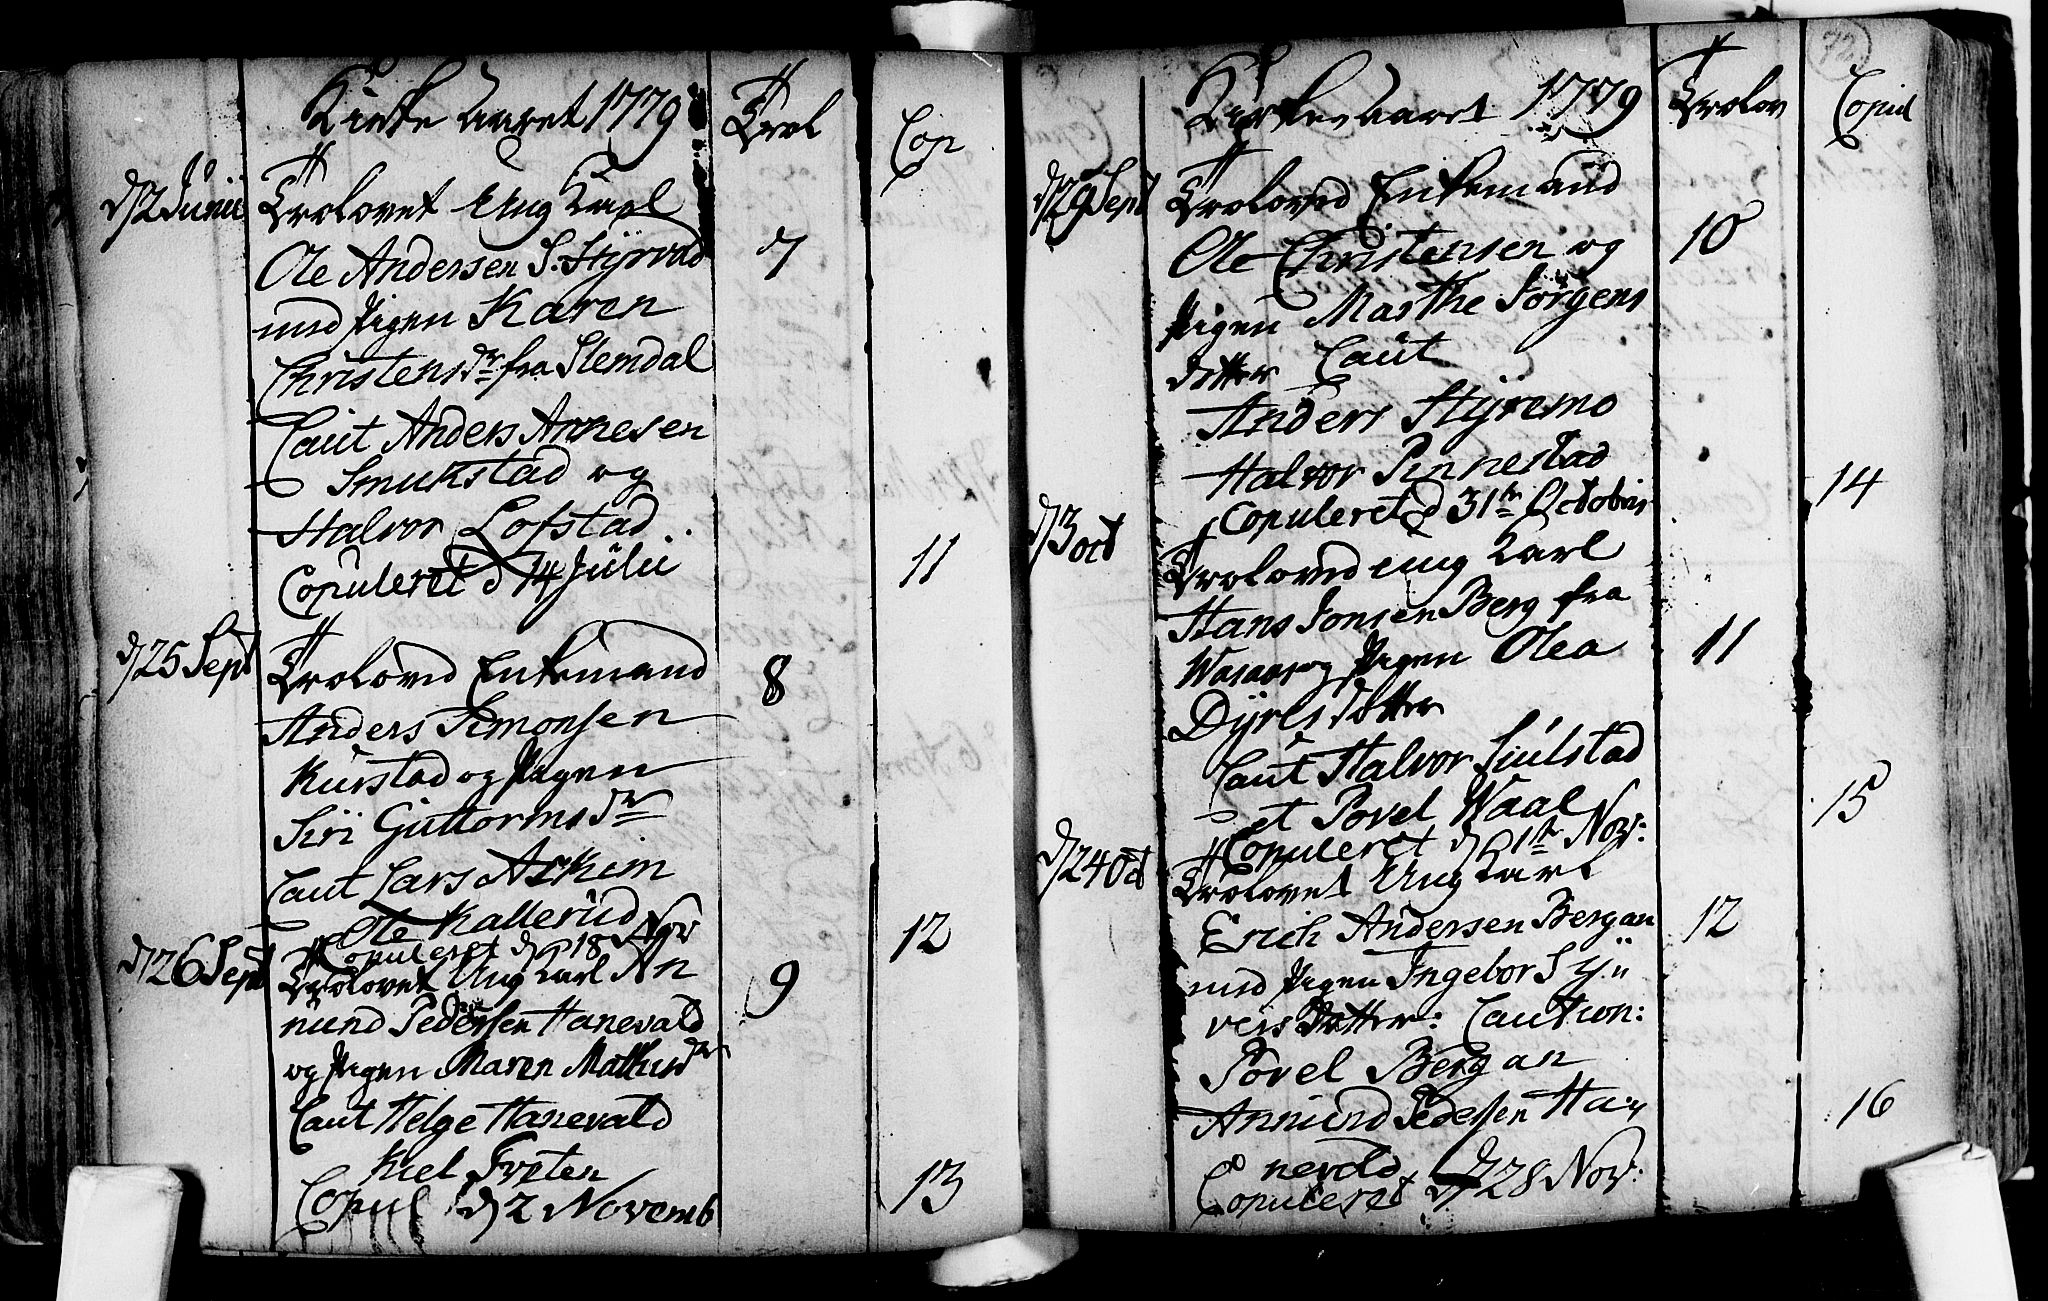 Kirke Aaret 1779
Trol
Cop
d 2 Junii
Trolovet Ung Karl
Ole Andersen S. Styrvold
7
med Pigen Karen
Christensdr fra Slemdal
Caut Anders Arnesen
Smukstad og
Halvor Lofstad
Copuleret d 14 Julii
11
d 25 Sept
Trolovid Enkemand
8
Anders Simonsen
Kurstad og Pigen
Siri Guttormsdr
Caut Lars Askim
Ole Kallerud
Copuleret d 18 Nov
12
d 26 Sept
Trolovet Ung Karl An
nund Pedersen Hanevald
9
og Pigen Maren Mathisdr
Caut Helge Hanevald
Kiel Tveten
Copul d 2 Novemb
13
72
Kirke Aaret 1779
Trolov
Copul
d 29 Sept
Trolovid Enkemand
Ole Christensen og
10
Pigen Marthe Jørgens
dotter Caut
Anders Styremo
Halvor Pinnestad
Copuleret d 31te Octobris
14
d 3 oct
Trolovid ung Karl
Hans Jonsen Berg fra
Pigen Olea
11
Dyrls dotter
Caut Halvor Siulstad
et Povel Waal
Copuleret d 1te Nov:
15
d 24 Oct
Trolovet Ung Karl
Erich Andersen Bergan
12
med Pigen Ingebor Sy¨
vers Dotter: Caution:
Povel Bergan
Annund Pedersen Ha
nevold
16
Copuleret d 28 Nov: